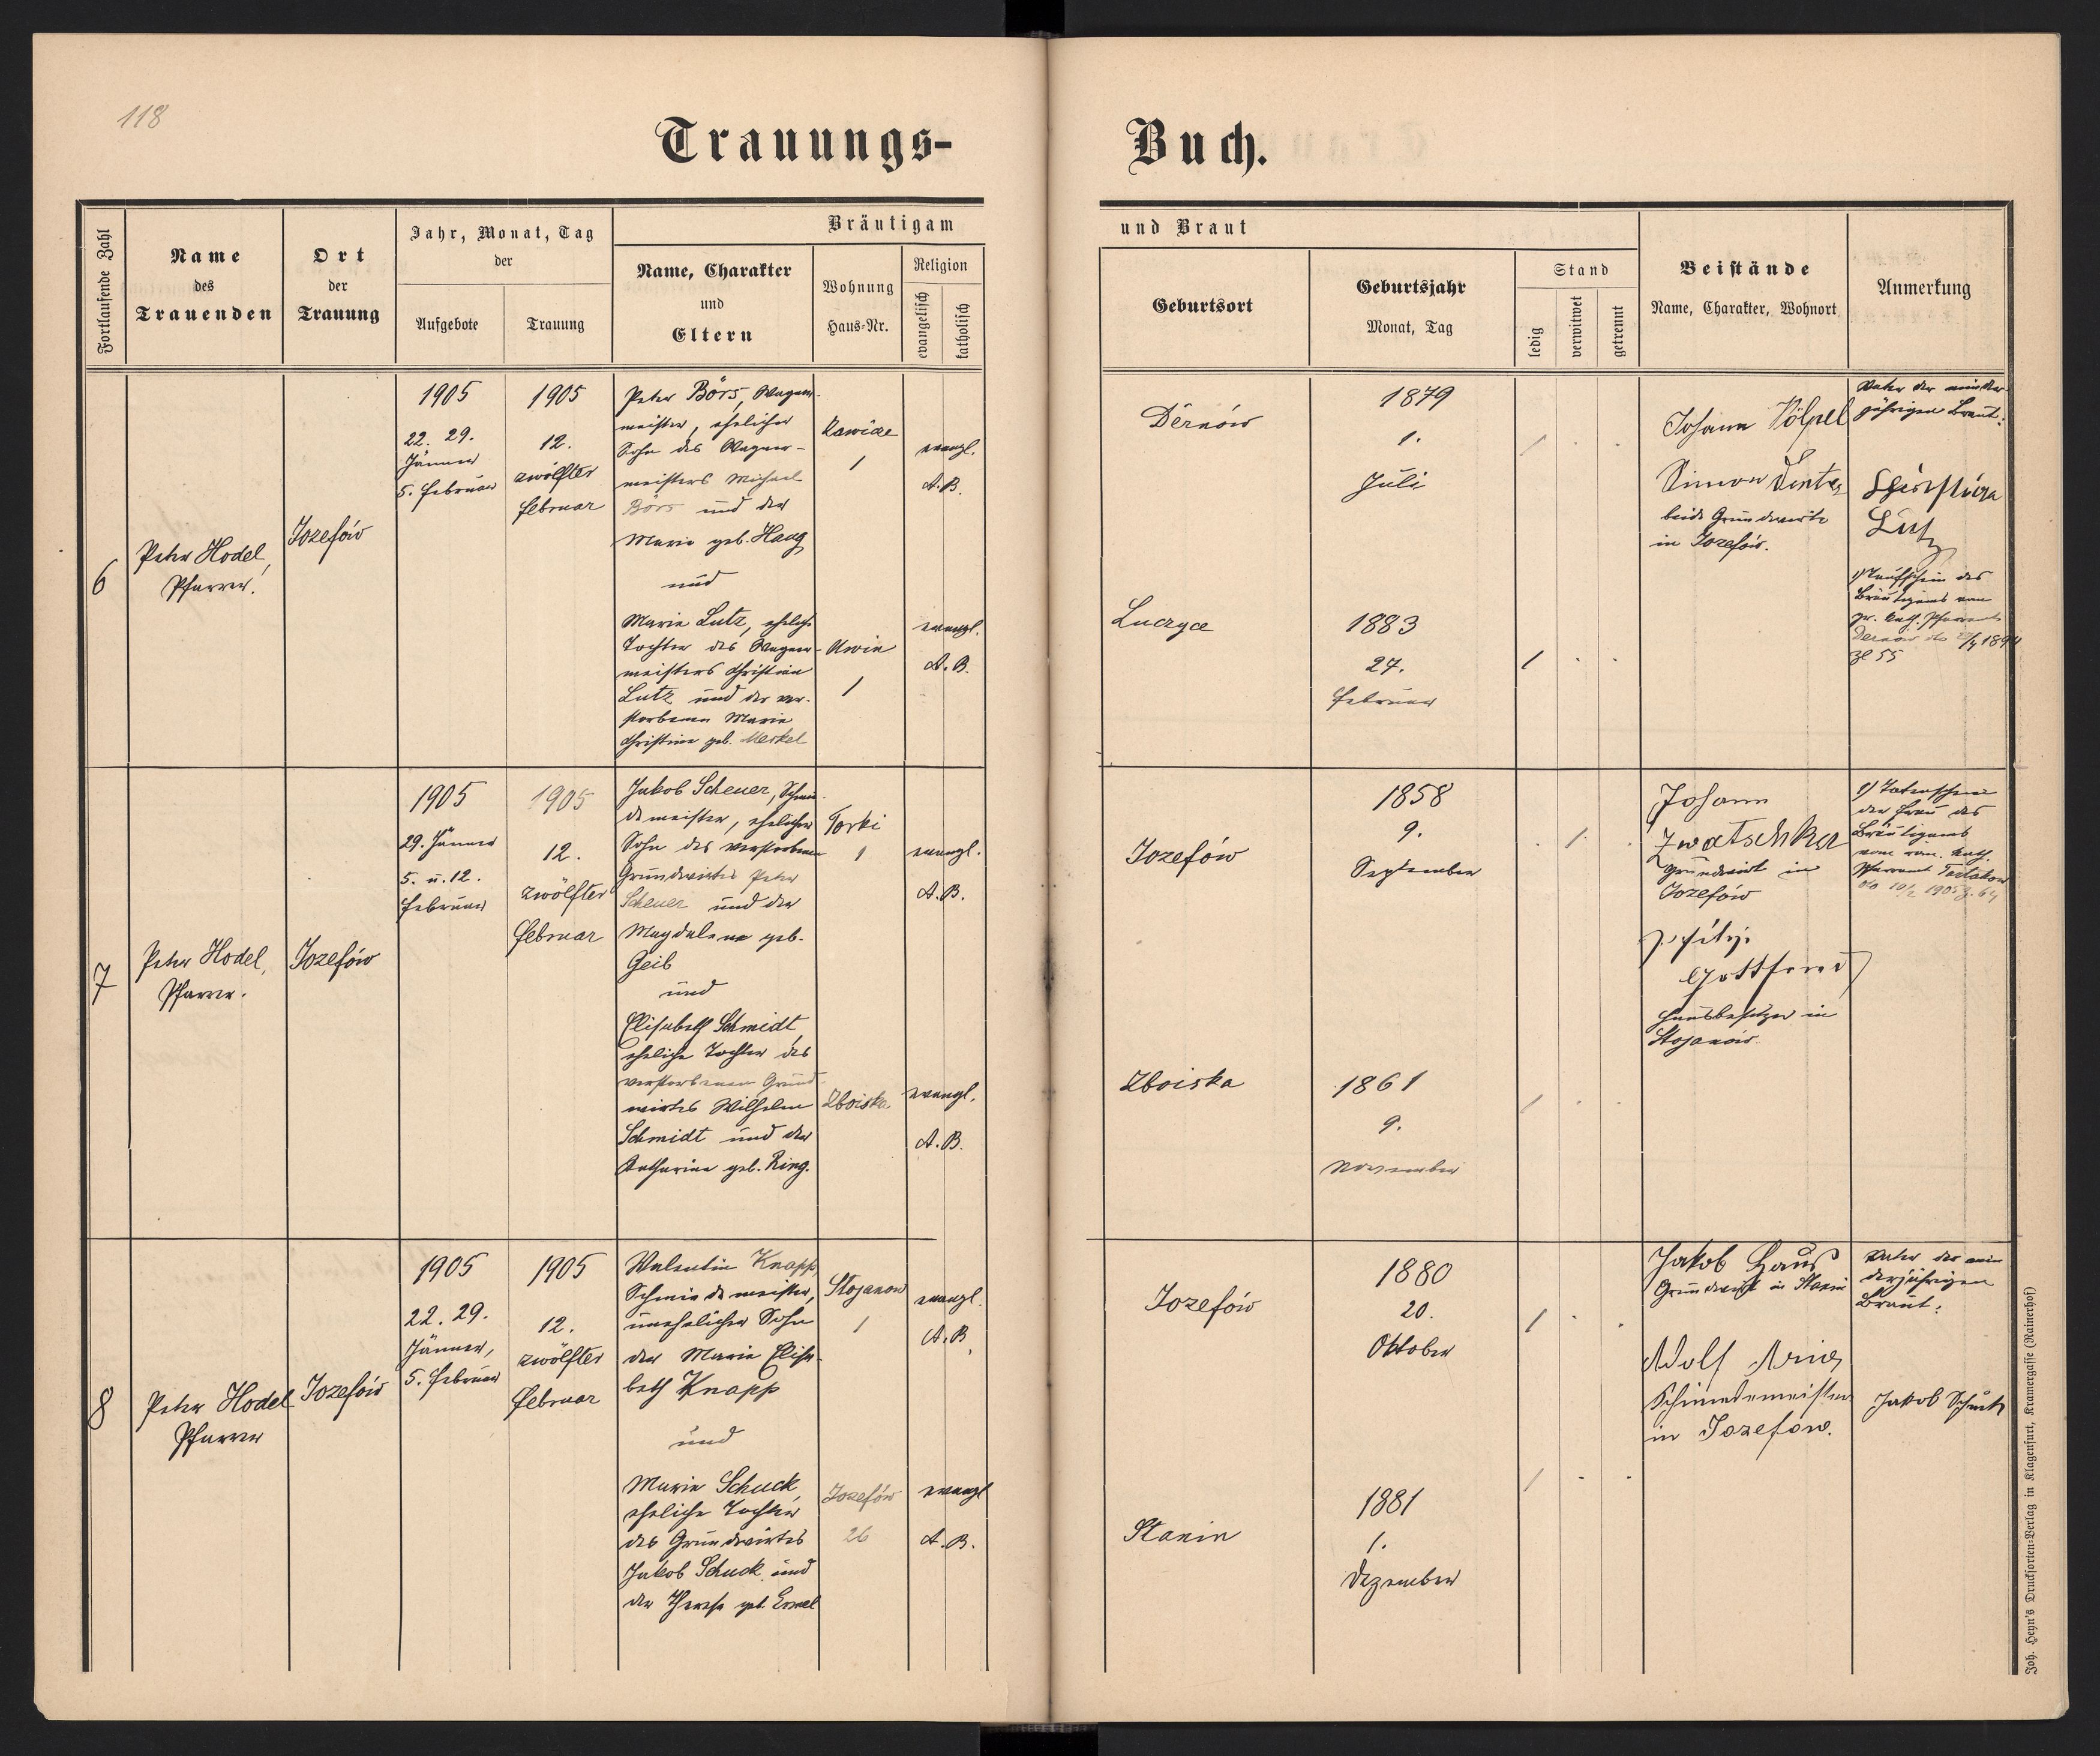 118
Trauungs-
Buch.
Fortlaufende Zahl
Name
des
Trauenden
Ort
der
Trauung
Jahr, Monat, Tag
der
Aufgebote
Trauung
Bräutigam
Name, Charakter
und
Eltern
Wohnung
Haus-Nr.
Religion
evangelisch
katholisch
und Braut
Geburtsort
Geburtsjahr
Monat, Tag
Stand
ledig
verwitwet
getrennt
Beistände
Name, Charakter, Wohnort
Anmerkung
6
Peter Hodel,
Pfarrer.
Jozefów
1905
22. 29.
Jänner
5. Februar
1905
12.
zwölfter
Februar
Peter Börs, Wagner-
meister, ehelicher
Sohn des Wagner-
meisters Michael
Börs und der
Marie geb. Haug
und
Marie Lutz, eheliche
Tochter des Wagner-
meisters Christian
Lutz und der ver-
storbenen Marie
Christine geb. Merkel
1
1
evangl.
A.B.
evangl.
A.B.
Dernów
Luczyce
1879
1.
Juli
1883
27.
Februar
Johann Völpel
Simon
beide Grundwirte
in Jozefów.
Vater der minder-
jährigen Braut:
Lutz
1) Taufschein des
Bräutigams vom
gr. kath. Pfarramte
Zl 55
7
Peter Hodel,
Pfarrer.
Jozefów
1905
29. Jänner
5. u. 12.
Februar
1905
12.
zwölfter
Februar
Jakob Scheuer, Schmie-
demeister, ehelicher
Sohn des verstorbenen
Grundwirtes Peter
Scheuer und der
Magdalena geb.
Geib
und
Elisabeth Schmidt,
eheliche Tochter des
verstorbenen Grund-
wirtes Wilhelm
Schmidt und der
Katharina geb. Ring.
Torki
1
Zboiska
evangl.
A.B.
evangl.
A.B.
Jozefów
Zboiska
1858
9.
September
1861
9.
November
Johann
Zwatschka
Grundwirt in
Jozefów
Gottfried
Hausbesitzer in
Stojanów.
1) Totenschein
der Frau des
Bräutigams
vom röm. kath.
Pfarramt Tartakow
8
Peter Hodel
Pfarrer
Jozefów
1905
22. 29.
Jänner,
5. Februar
1905
12.
zwölfter
Februar
Valentin Knapp,
Schmiedemeister,
unehelicher Sohn
der Marie Elisa-
beth Knapp
und
Marie Schuck,
eheliche Tochter
des Grundwirtes
Jakob Schuck und
der Therese geb.
Stojanow
1
Jozefów
26
evangl.
A.B.
evangl
A.B.
Jozefów
Stanin
1880
20.
Oktober
1881
1.
Dezember
Jakob
Grundwirt in Stanin
Adolf
Schmiedemeister
in Jozefow.
Vater der min
derjährigen
Braut:
Jakob Schuck
Joh. Heyn's Drucksorten-Verlag in Klagenfurt, Kramergasse (Rainerhof)